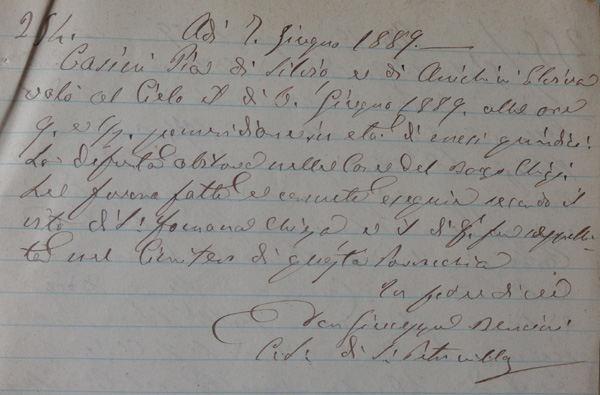 254. Adì 7. Giugno 1889.
Casini Pia di Silvio e di Anichini Elvira
volò al Cielo il dì 6. Giugno 1889. alle ore
9. e ½. pomeridiane in età di mesi quindici
La defunta abitava nelle Case del
Le furono fatte le esequie secondo il
rito di S. Romana Chiesa e il dì fu seppelli-
ta nel Cimitero di questa Parrocchia
In fede di ciò
Don Giuseppe Bencini
di S.